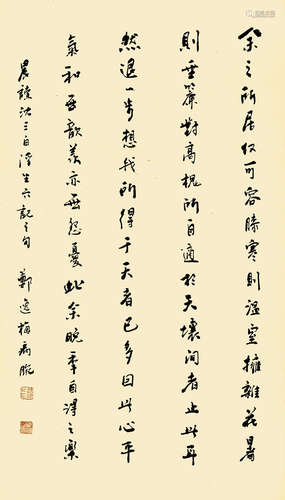 余之所居仅可容膝寒则温室拥杂花暑
則垂簾對高槐所自適於天壤间者止此耳
然退一步想我所得于天者已多因此心平
氣和无歆羡亦无怨憂此余晚年自得之樂
晨讀沈三白浮生六記之句 鄭逸梅